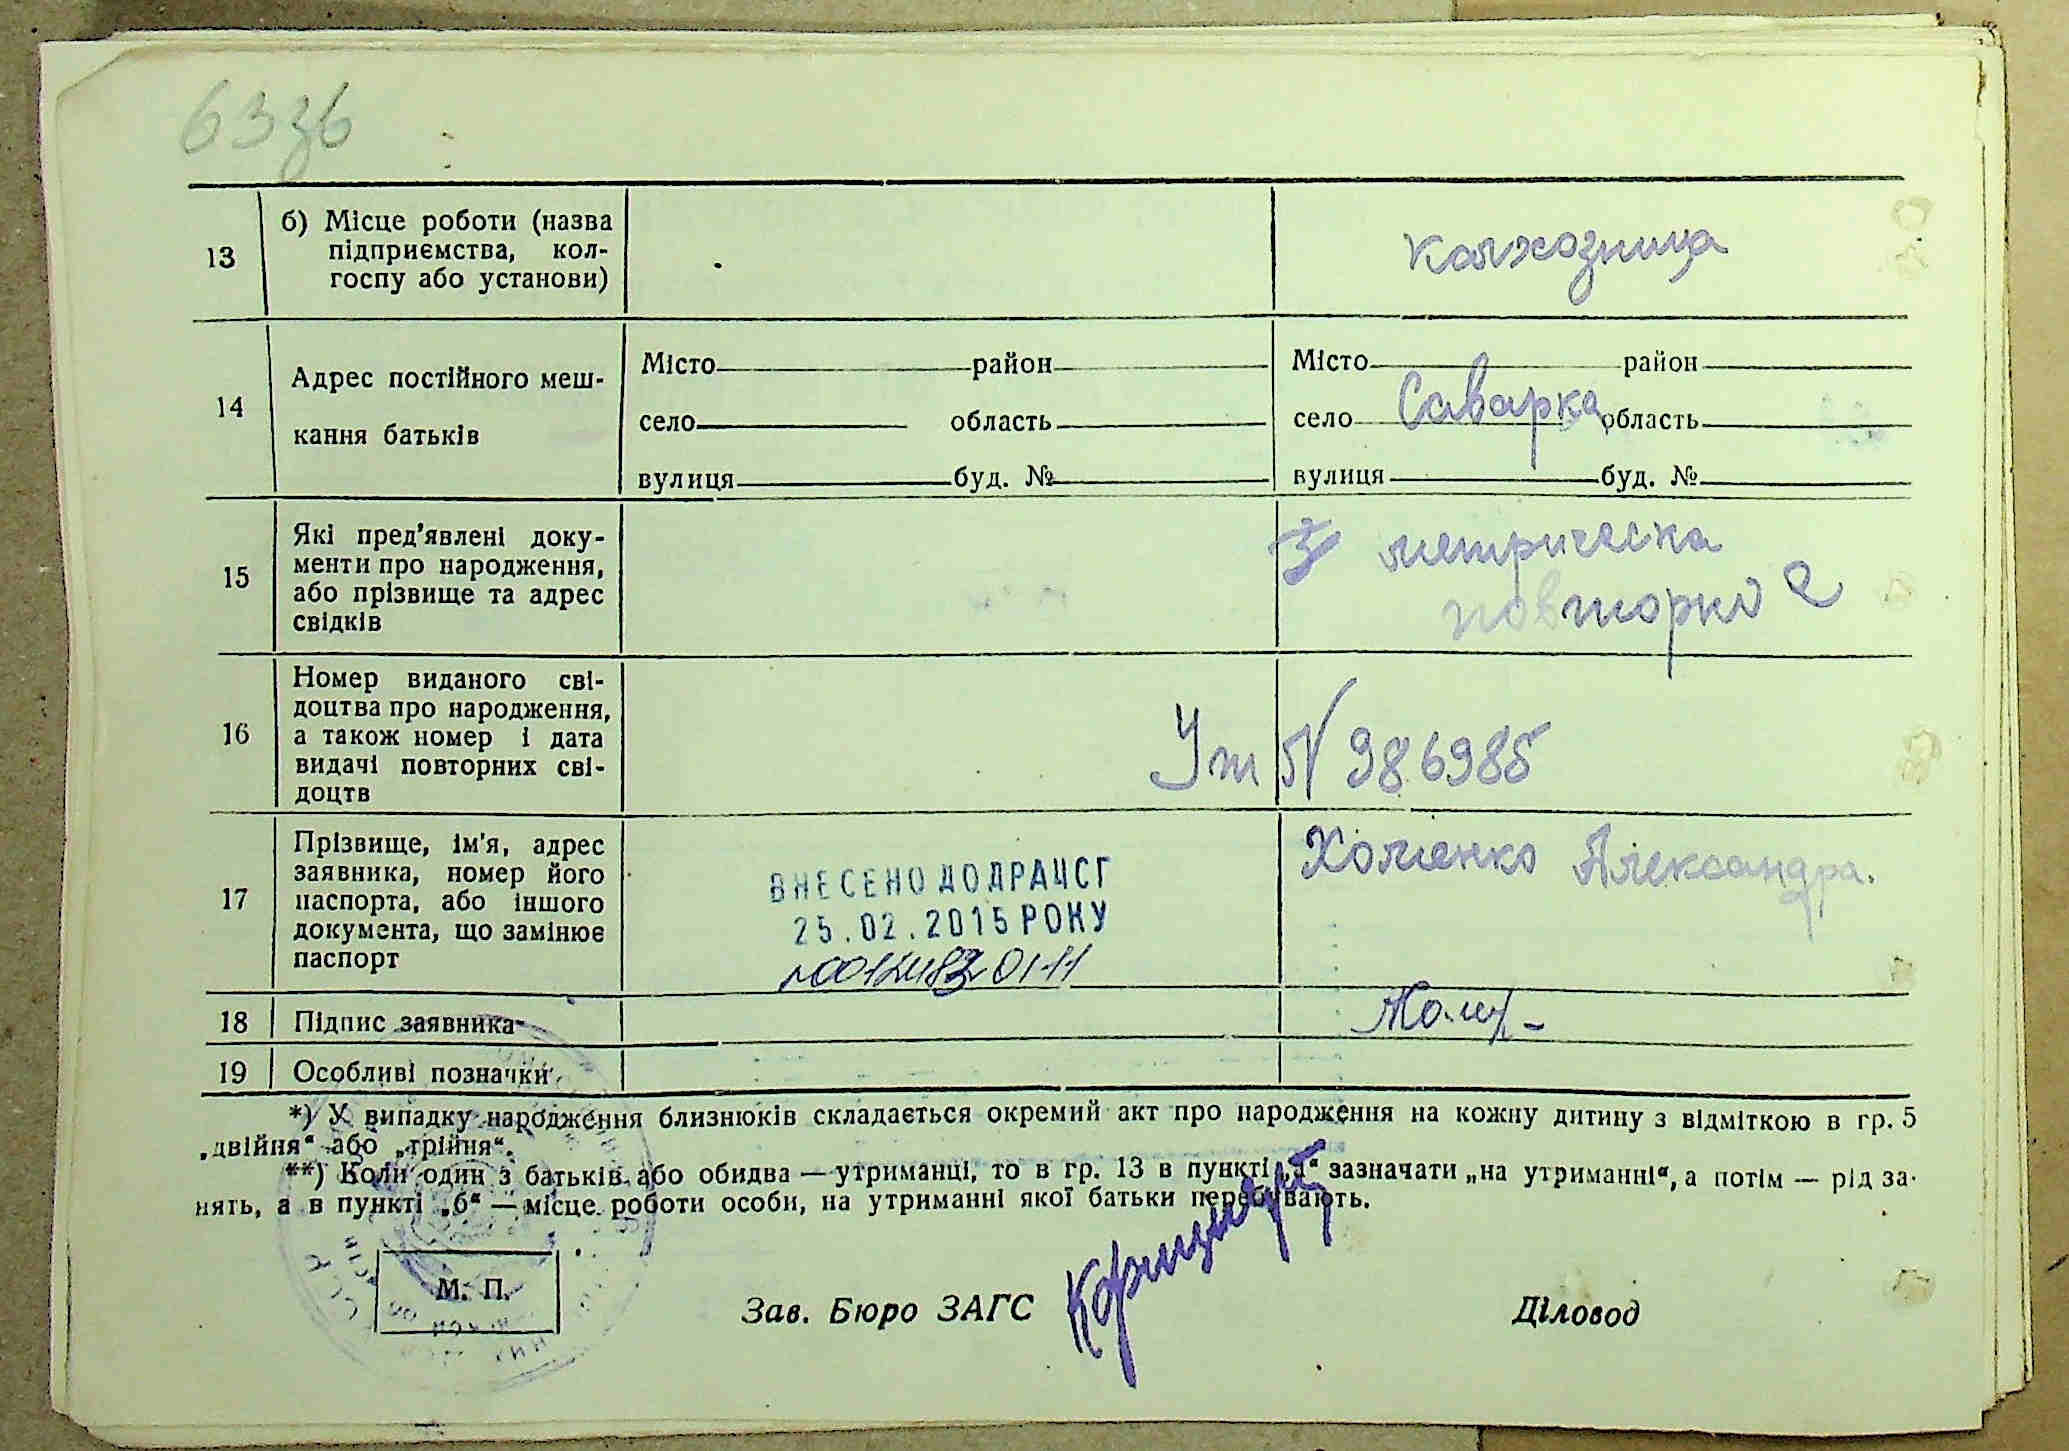 63зб
13
б) Місце роботи (назва
підприємства, кол-
госпу або установи)
колхозница
14
Адрес постійного меш-
кання батьків
Місто район
село область
вулиця буд. №
Місто район
село Саварка область
вулиця буд. №
15
Які пред'явлені доку-
менти про народження,
або прізвище та адрес
свідків
З метрическа
повторно
16
Номер виданого сві-
доцтва про народження,
а також номер і дата
видачі повторних сві-
доцтв
№ 986985
17
Прізвище, ім'я, адрес
заявника, номер його
паспорта, або іншого
документа, що замінює
паспорт
ВНЕСЕНО ДО ДРАЦСГ
25.02.2015 РОКУ
Хоменко Александра.
18
Підпис заявника
19
Особливі позначки
*) У випадку народження близнюків складається окремий акт про народження на кожну дитину з відміткою в гр. 5
„двійня“ або „трійня“.
**) Коли один з батьків або обидва — утриманці, то в гр. 13 в пункті „а“ зазначати „на утриманні“, а потім — рід за-
нять, а в пункті „б“ — місце роботи особи, на утриманні якої батьки перебувають.
М. П.
Зав. Бюро ЗАГС
Діловод